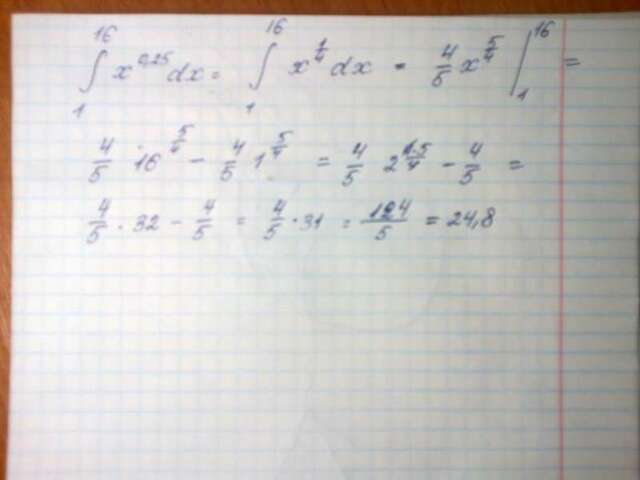 ∫₁¹⁶ x^0,25 dx = ∫₁¹⁶ x^(1/4) dx = 4/5 x^(5/4) |₁¹⁶ =
4/5 · 16^(5/4) − 4/5 1^(5/4) = 4/5 2^(4·5/4) − 4/5 =
4/5 · 32 − 4/5 = 4/5 · 31 = 124/5 = 24,8